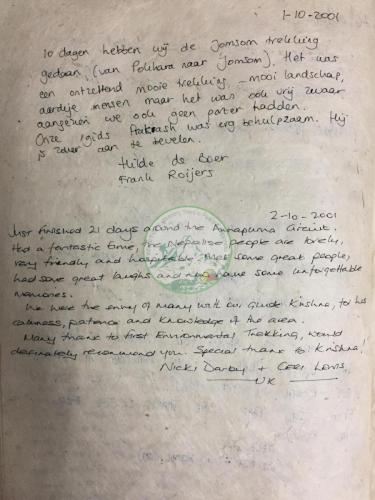 1-10-2001
10 dagen hebben wij de Jomsom trekking
gedaan, (van Pokhara naar Jomsom). Het was
een ontzettend mooie trekking, - mooi landschap,
aardige mensen maar het was ook vrij zwaar
aangezien we ook geen porter hadden.
Onze gids Prakash was erg behulpzaam. Hij
is zeker aan te bevelen.
Hilde de Boer
Frank Roijers
2-10-2001
Just finished 21 days around the Annapurna Circuit.
Had a fantastic time, the Nepalise people are lovely,
very friendly and hospitable. Met some great people,
had some great laughs and now have some unforgettable
memories.
We were the envy of many with our guide Krishna, to his
calmness, patience and knowledge of the area.
Many thanks to first Environmental Trekking, would
definately recommend you. Special thanks to Krishna!
Nicki Darby + Ceri Lewis
UK